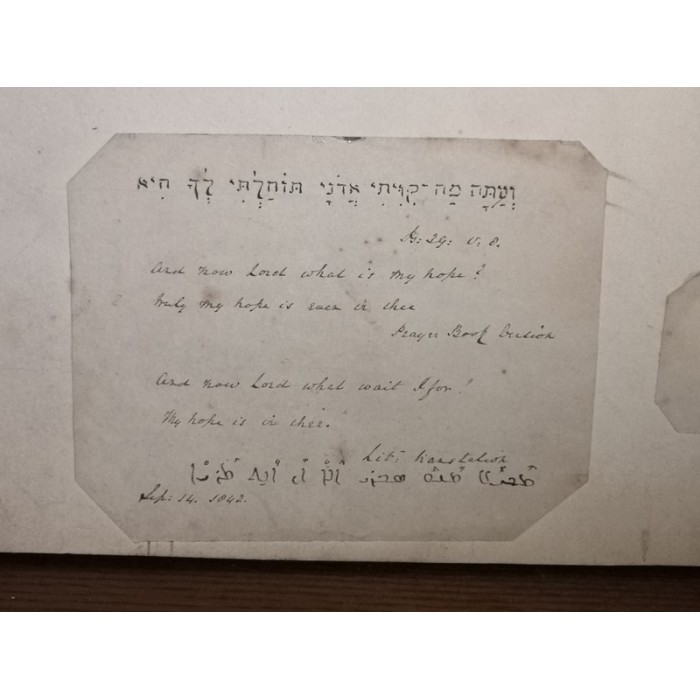 וְעַתָּה מַה־קִוִּיתִי אֲדֹנָי תּוֹחַלְתִּי לְךָ הִיא
Ps: 39: v. 8.
And now Lord what is my hope?
truly my hope is even in thee
Prayer Book Version
And now Lord what wait I for!
My hope is in thee.
translation
Sep: 14. 1842.